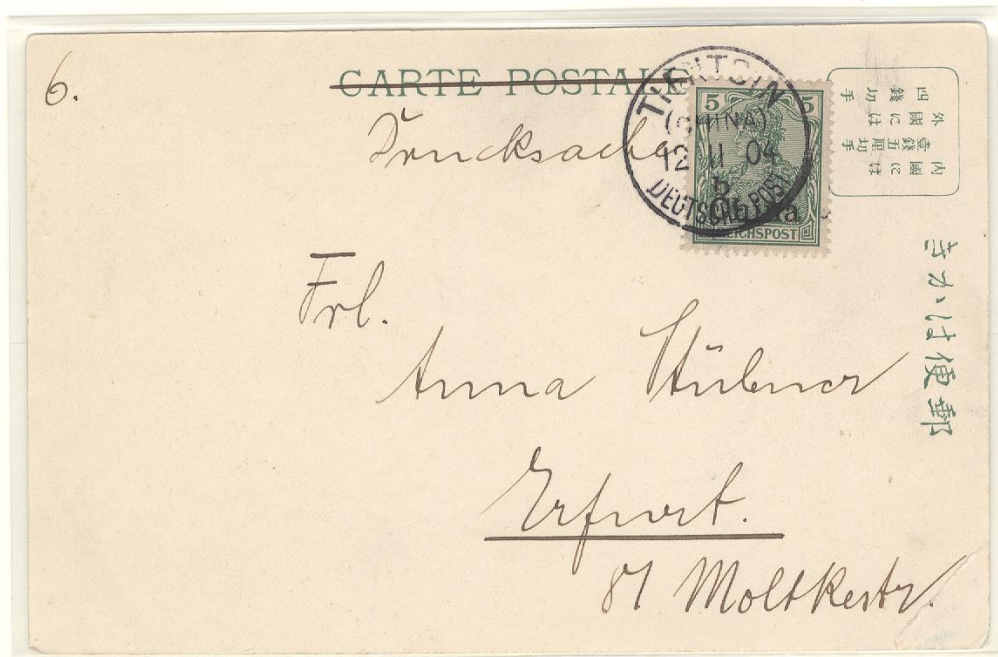 6.
CARTE POSTALE
Drucksache
TIENTSIN
(CHINA)
12 11 04
DEUTSCHE POST
5 5
China
REICHSPOST
外國に四錢切手
は
內國は壹錢五厘切手
に
郵便はかき
Frl.
Anna Stübner
Erfurt.
81 Moltkestr.